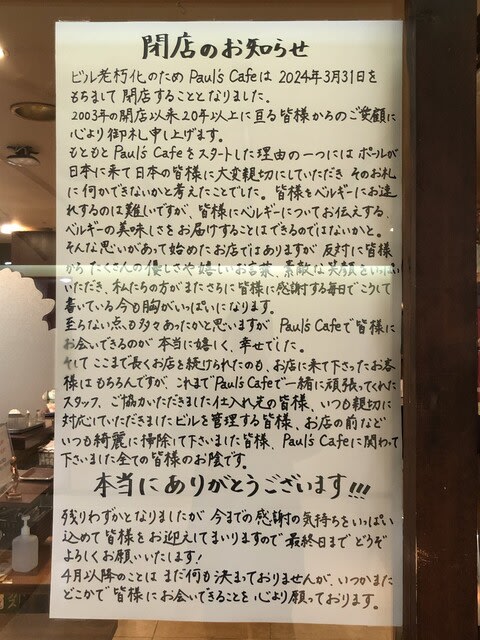 閉店のお知らせ
ビル老朽化のため Paul's Cafeは 2024年3月31日を
もちまして 閉店することとなりました。
2003年の開店以来 20年以上に亘る皆様からのご愛顧に
心より御礼申し上げます。
もともと Paul's Cafeをスタートした理由の一つには ポールが
日本に来て 日本の皆様に大変親切にしていただき そのお礼
に何かできないかと考えたことでした。皆様をベルギーにお連
れするのは難しいですが、皆様にベルギーについてお伝えする、
ベルギーの美味しさをお届けすることはできるのではないかと。
そんな思いがあって始めたお店ではありますが 反対に皆様
から たくさんの優しさや嬉しいお言葉、素敵な笑顔をいっぱい
いただき、私たちの方がまたさらに皆様に感謝する毎日でこうして
書いている今も胸がいっぱいになります。
至らない点も多々あったかと思いますが Paul's Cafeで皆様に
お会いできるのが 本当に嬉しく、幸せでした。
そして ここまで長くお店を続けられたのも、お店に来て下さったお客
様はもちろんですが、これまでPaul's Cafeで一緒に頑張ってくれた
スタッフ、ご協力いただきました仕入れ先の皆様、いつも親切に
対応していただきましたビルを管理する皆様、お店の前など
いつも綺麗に掃除して下さいました皆様、Paul's Cafeに関わって
下さいました全ての皆様のお陰です。
本当にありがとうございます!!!
残りわずかとなりましたが 今までの感謝の気持ちをいっぱい
込めて 皆様をお迎えしてまいりますので 最終日まで どうぞ
よろしくお願いいたします!
4月以降のことは まだ何も決まっておりませんが、いつかまた
どこかで 皆様にお会いできることを 心より願っております。